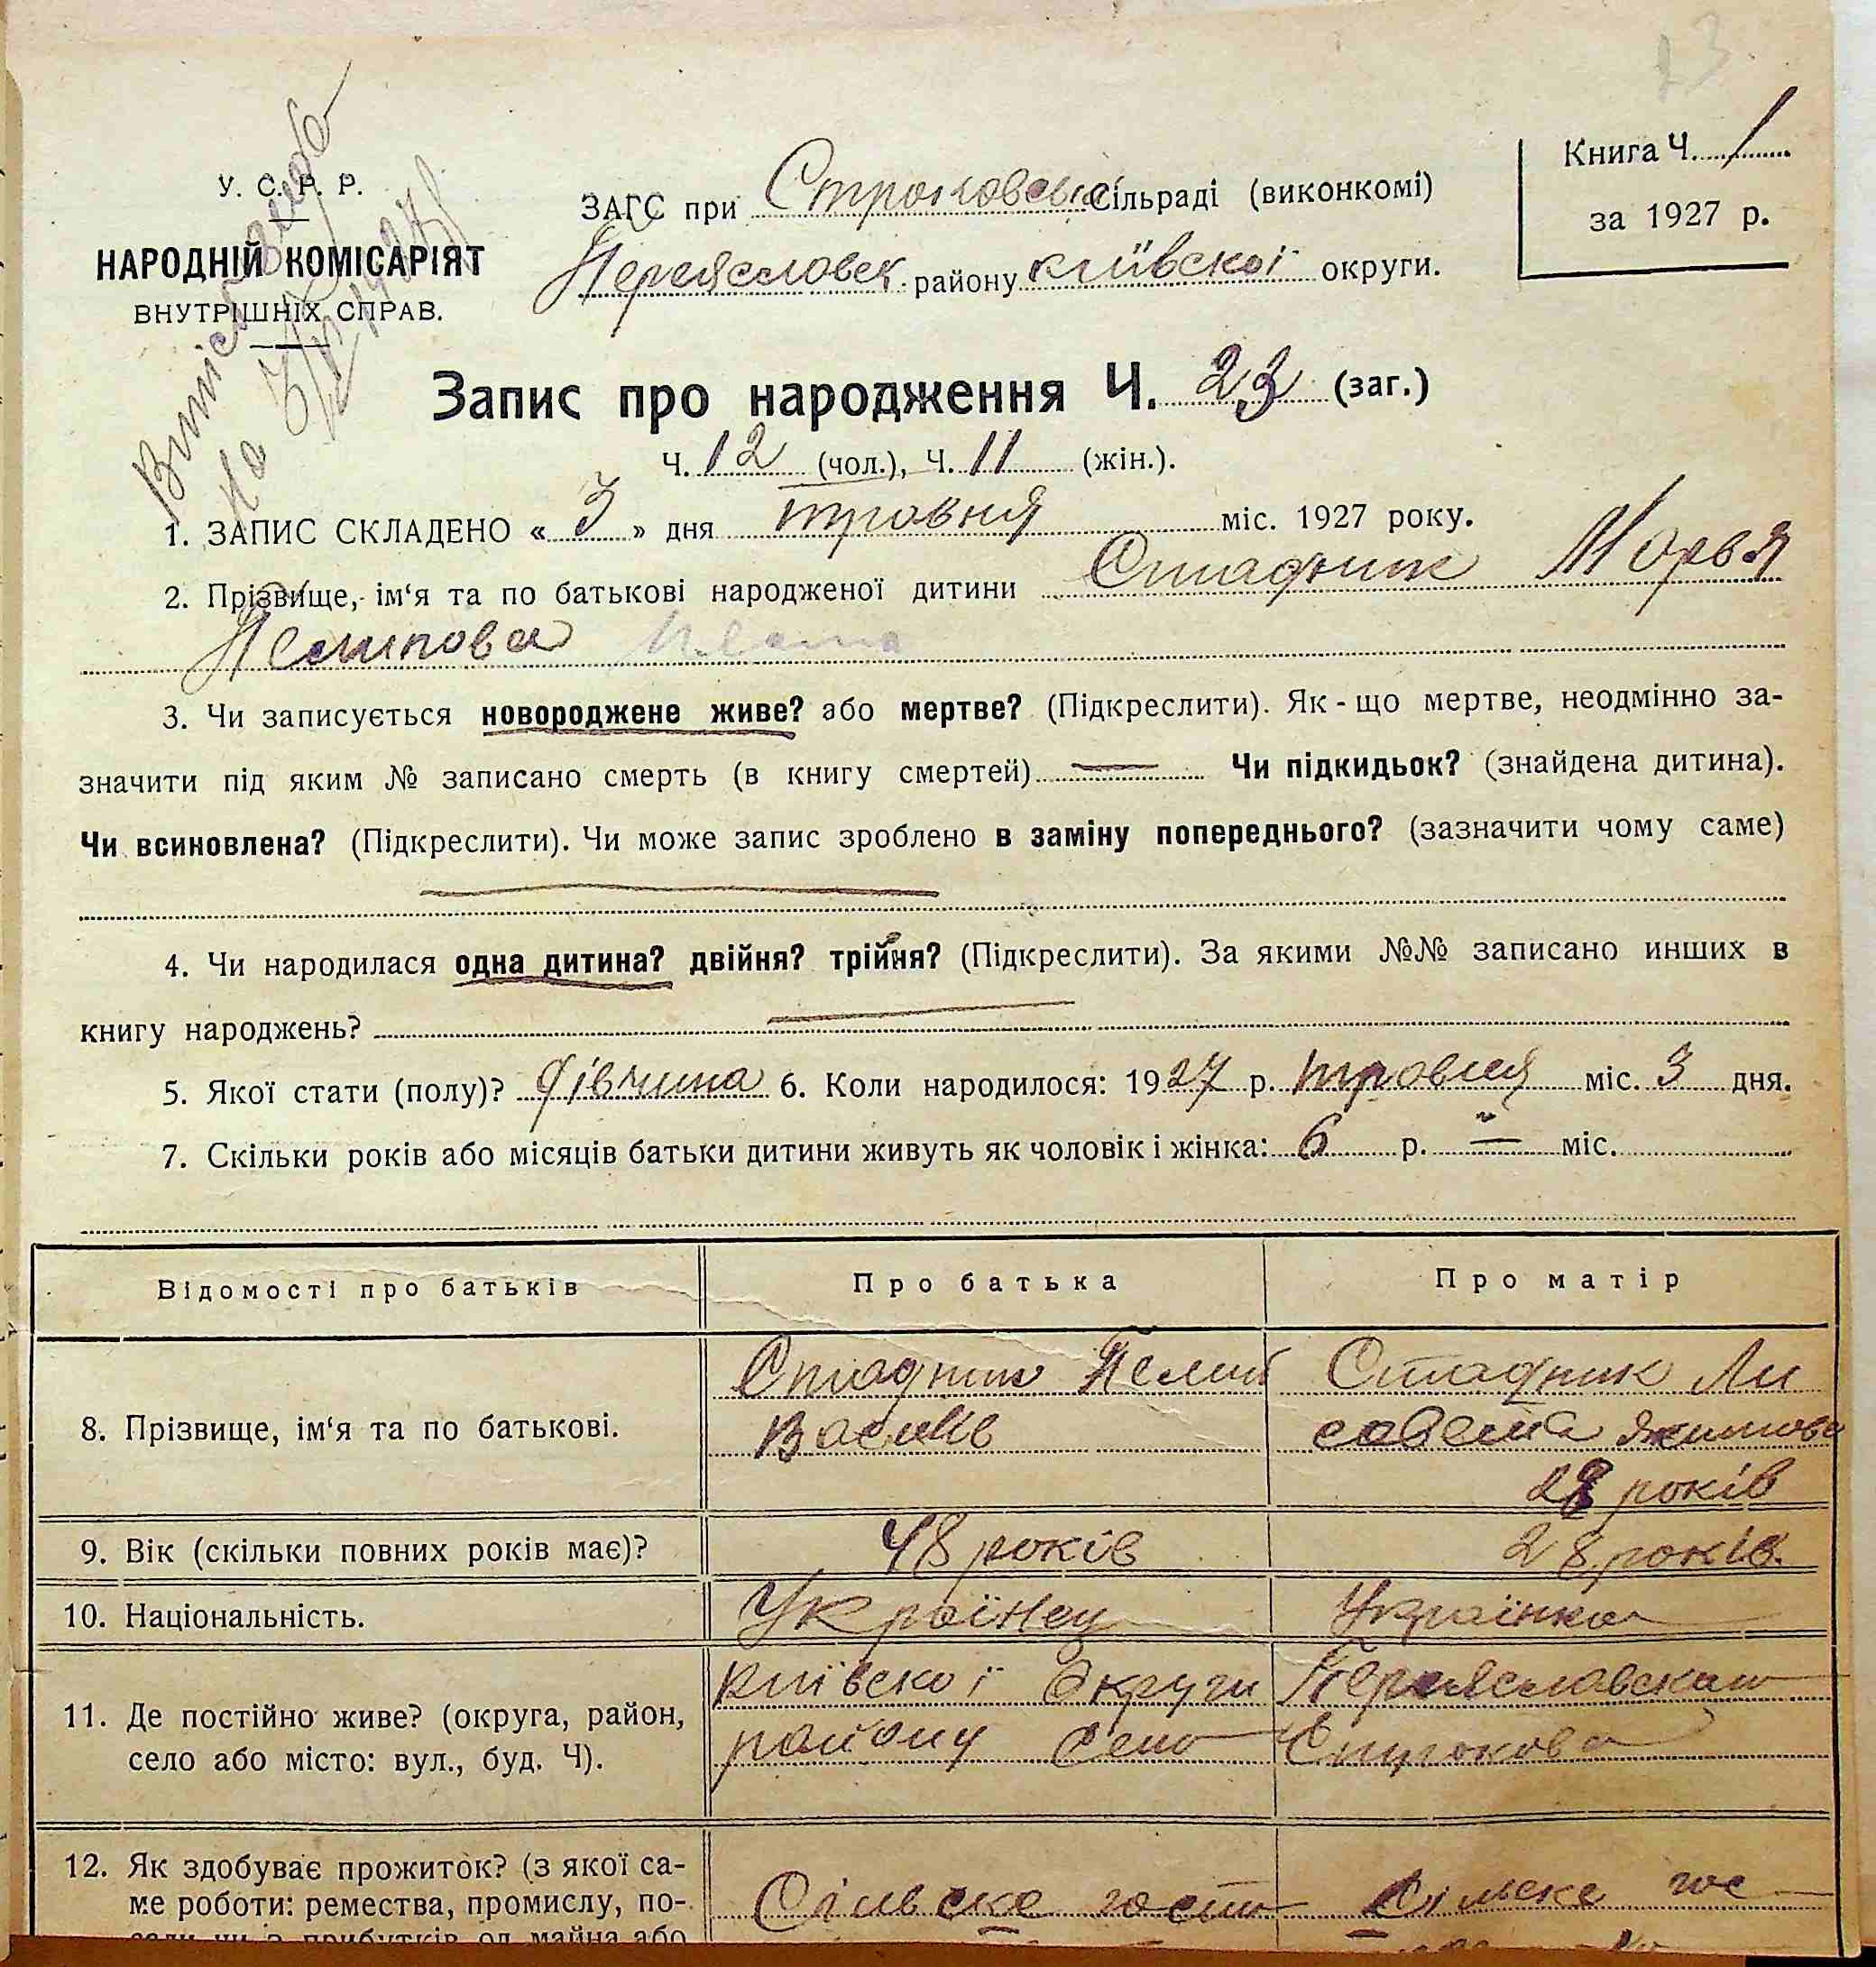 23
Книга Ч. 1
за 1927 р.
У. С. Р. Р.
НАРОДНІЙ КОМІСАРІЯТ
ВНУТРІШНІХ СПРАВ.
ЗАГС при Строковські Сільраді (виконкомі)
Переяславск. району київскої округи.
Запис про народження Ч. 23 (заг.)
Ч. 12 (чол.), Ч. 11 (жін.).
1. ЗАПИС СКЛАДЕНО « 3 » дня травня міс. 1927 року.
2. Прізвище, ім‘я та по батькові народженої дитини Стадник Марья
Пелипова
3. Чи записується новороджене живе? або мертве? (Підкреслити). Як - що мертве, неодмінно за-
значити під яким № записано смерть (в книгу смертей) — Чи підкидьок? (знайдена дитина).
Чи всиновлена? (Підкреслити). Чи може запис зроблено в заміну попереднього? (зазначити чому саме)
4. Чи народилася одна дитина? двійня? трійня? (Підкреслити). За якими №№ записано инших в
книгу народжень?
5. Якої стати (полу)? дівчина 6. Коли народилося: 1927 р. травня міс. 3 дня.
7. Скільки років або місяців батьки дитини живуть як чоловік і жінка: 6 р. — міс.
Відомості про батьків Про батька Про матір
8. Прізвище, ім‘я та по батькові.
Стадник Пелип
Василів
Стадник Ли
савета Якимова
28 років
9. Вік (скільки повних років має)? 48 років 28 років.
10. Національність. Українец Українка
11. Де постійно живе? (округа, район,
село або місто: вул., буд. Ч).
київскої Округи Переяславскаго
району село Строкова
12. Як здобуває прожиток? (з якої са-
ме роботи: ремества, промислу, по-
сади чи з прибутків од майна або
Сільске госп Сільске гос